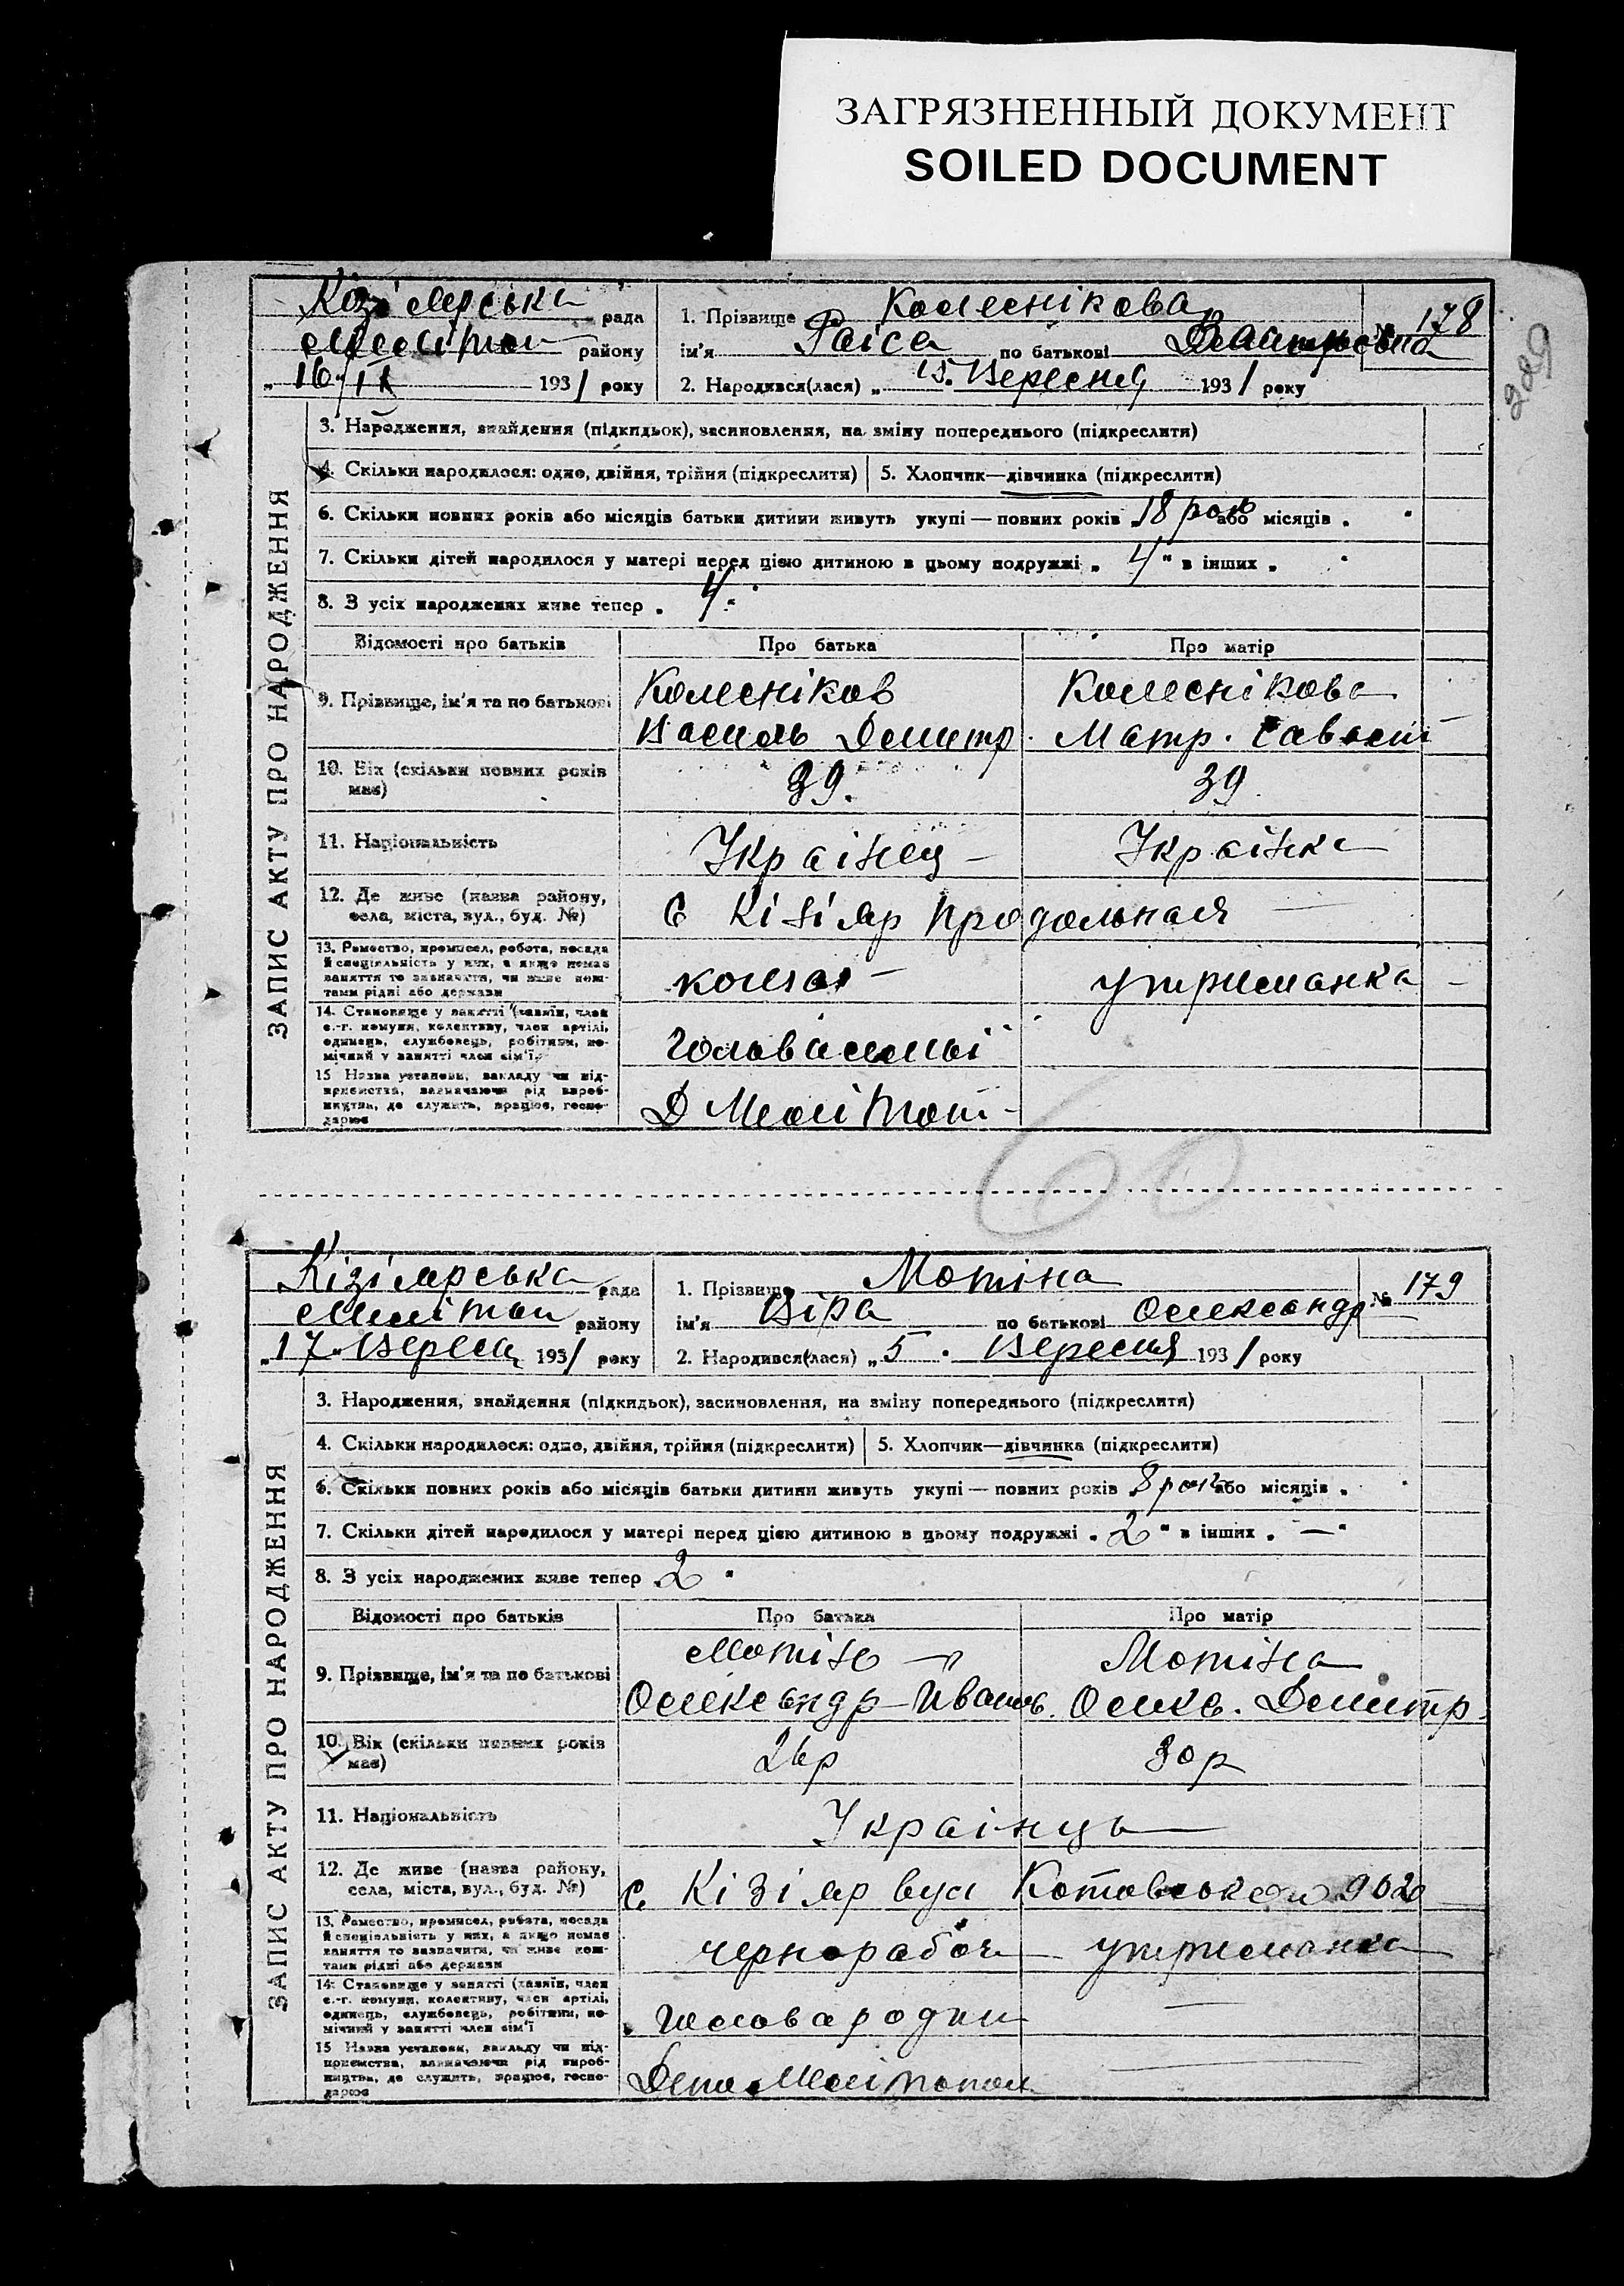 ЗАГРЯЗНЕННЫЙ ДОКУМЕНТ
SOILED DOCUMENT
289
ЗАПИС АКТУ ПРО НАРОДЖЕННЯ
Кізіярська рада
Мелітоп району
„16/IX 1931 року
1. Прізвище Колеснікова
№ 178
ім'я Раіса по батькові
2. Народився(лася) „15. Вересня 1931 року
3. Народження, знайдення (підкидьок), засиновлення, на зміну попереднього (підкреслити)
4. Скільки народилося: одно, двійня, трійня (підкреслити)
5. Хлопчик—дівчинка (підкреслити)
6. Скільки повних років або місяців батьки дитини живуть укупі — повних років „18 рок або місяців „ "
7. Скільки дітей народилося у матері перед цією дитиною в цьому подружжі „ 4 " в інших „ "
8. З усіх народжених живе тепер „ 4 "
Відомості про батьків Про батька Про матір
9. Прізвище, ім'я та по батькові
Колесніков Колеснікова
Василь Демитр. Матр. Саваст
10. Вік (скільки повних років має) 39. 39
11. Національність Украінец Украінка
12. Де живе (назва району, села, міста, вул., буд. №) С Кізіяр Продольная
13. Ремество, промисел, робота, посада
й спеціяльність у них, а якщо немає
заняття то зазначити, чи живе кош-
тами рідні або держави
утриманка
14. Становище у занятті (хазяїн, член
с.-г. комуни, колективу, член артілі,
одинець, службовець, робітник, по-
мічний у занятті член сім'ї)
Голова семьї
15 Назва установи, закладу чи під-
приємства, зазначаючи рід вироб-
ництва, де служить, працює, госпо-
дарює
Д Мелітоп
60
ЗАПИС АКТУ ПРО НАРОДЖЕННЯ
Кізіярська рада
Мелітоп району
„17" Вересн 1931 року
1. Прізвище Мотіна
№ 179
ім'я Віра по батькові Олександр
2. Народився(лася) „5 " Вересня 1931 року
3. Народження, знайдення (підкидьок), засиновлення, на зміну попереднього (підкреслити)
4. Скільки народилося: одно, двійня, трійня (підкреслити)
5. Хлопчик—дівчинка (підкреслити)
6. Скільки повних років або місяців батьки дитини живуть укупі — повних років „8 рок або місяців „ "
7. Скільки дітей народилося у матері перед цією дитиною в цьому подружжі „ 2 " в інших „ — "
8. З усіх народжених живе тепер „2 "
Відомості про батьків Про батька Про матір
9. Прізвище, ім'я та по батькові
Мотін Мотіна
Олександр Іванов. Олекс. Демитр.
10. Вік (скільки повних років має) 26р 30р
11. Національність Украінць
12. Де живе (назва району, села, міста, вул., буд. №) с. Кізіяр вул Котовського
13. Ремество, промисел, робота, посада
й спеціяльність у них, а якщо немає
заняття то зазначити, чи живе кош-
тами рідні або держави
чернорабоч утриманка
14. Становище у занятті (хазяїн, член
с.-г. комуни, колективу, член артілі,
одинець, службовець, робітник, по-
мічний у занятті член сім'ї
Голова родин
15 Назва установи, закладу чи під-
приємства, зазначаючи рід вироб-
ництва, де служить, працює, госпо-
дарює
Депо Мелітопол